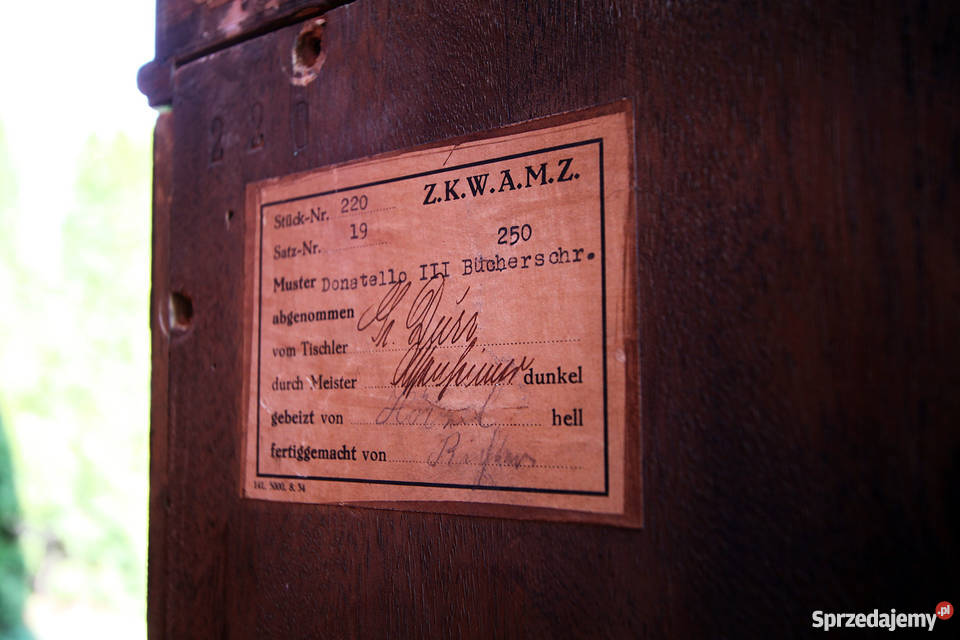 220
Z.K.W.A.M.Z.
Stück-Nr. 220
Satz-Nr. 19
250
Muster Donatello III Bücherschr.
abgenommen
vom Tischler
durch Meister dunkel
gebeizt von hell
fertiggemacht von Richter
141. 5000. 8. 34
Sprzedajemy.pl